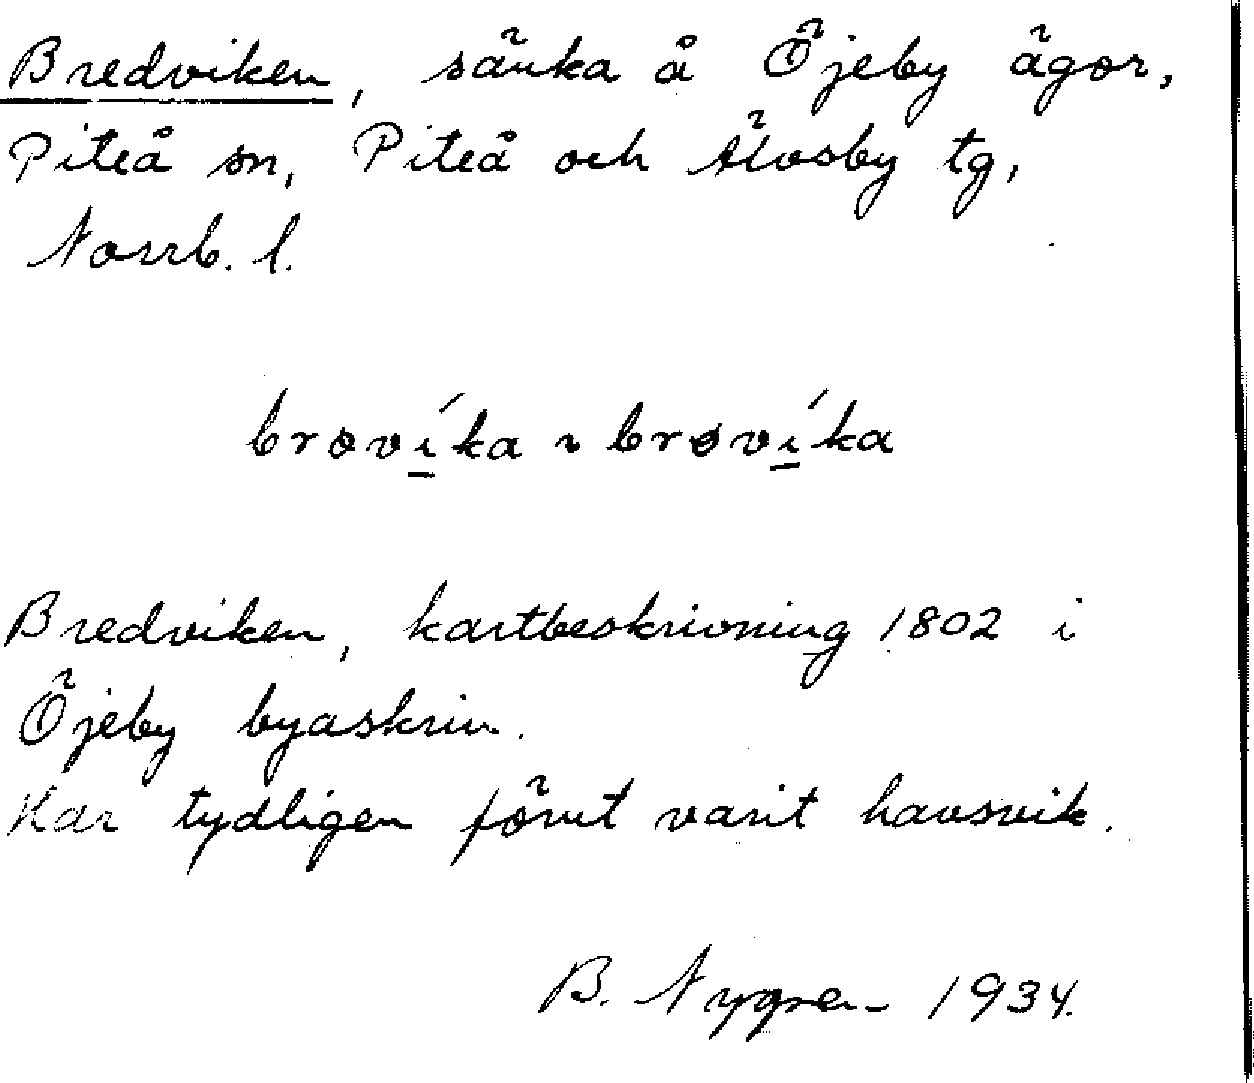 Bredviken, sänka å Öjeby ägor,
Piteå sn, Piteå och Älvsby tg,
Norrb. l.
broví̲ka ~ brøví̲ka
Bredviken, kartbeskrivning 1802 i
Öjeby byaskrin.
Har tydligen förut varit havsvik.
B. Nygren 1934.